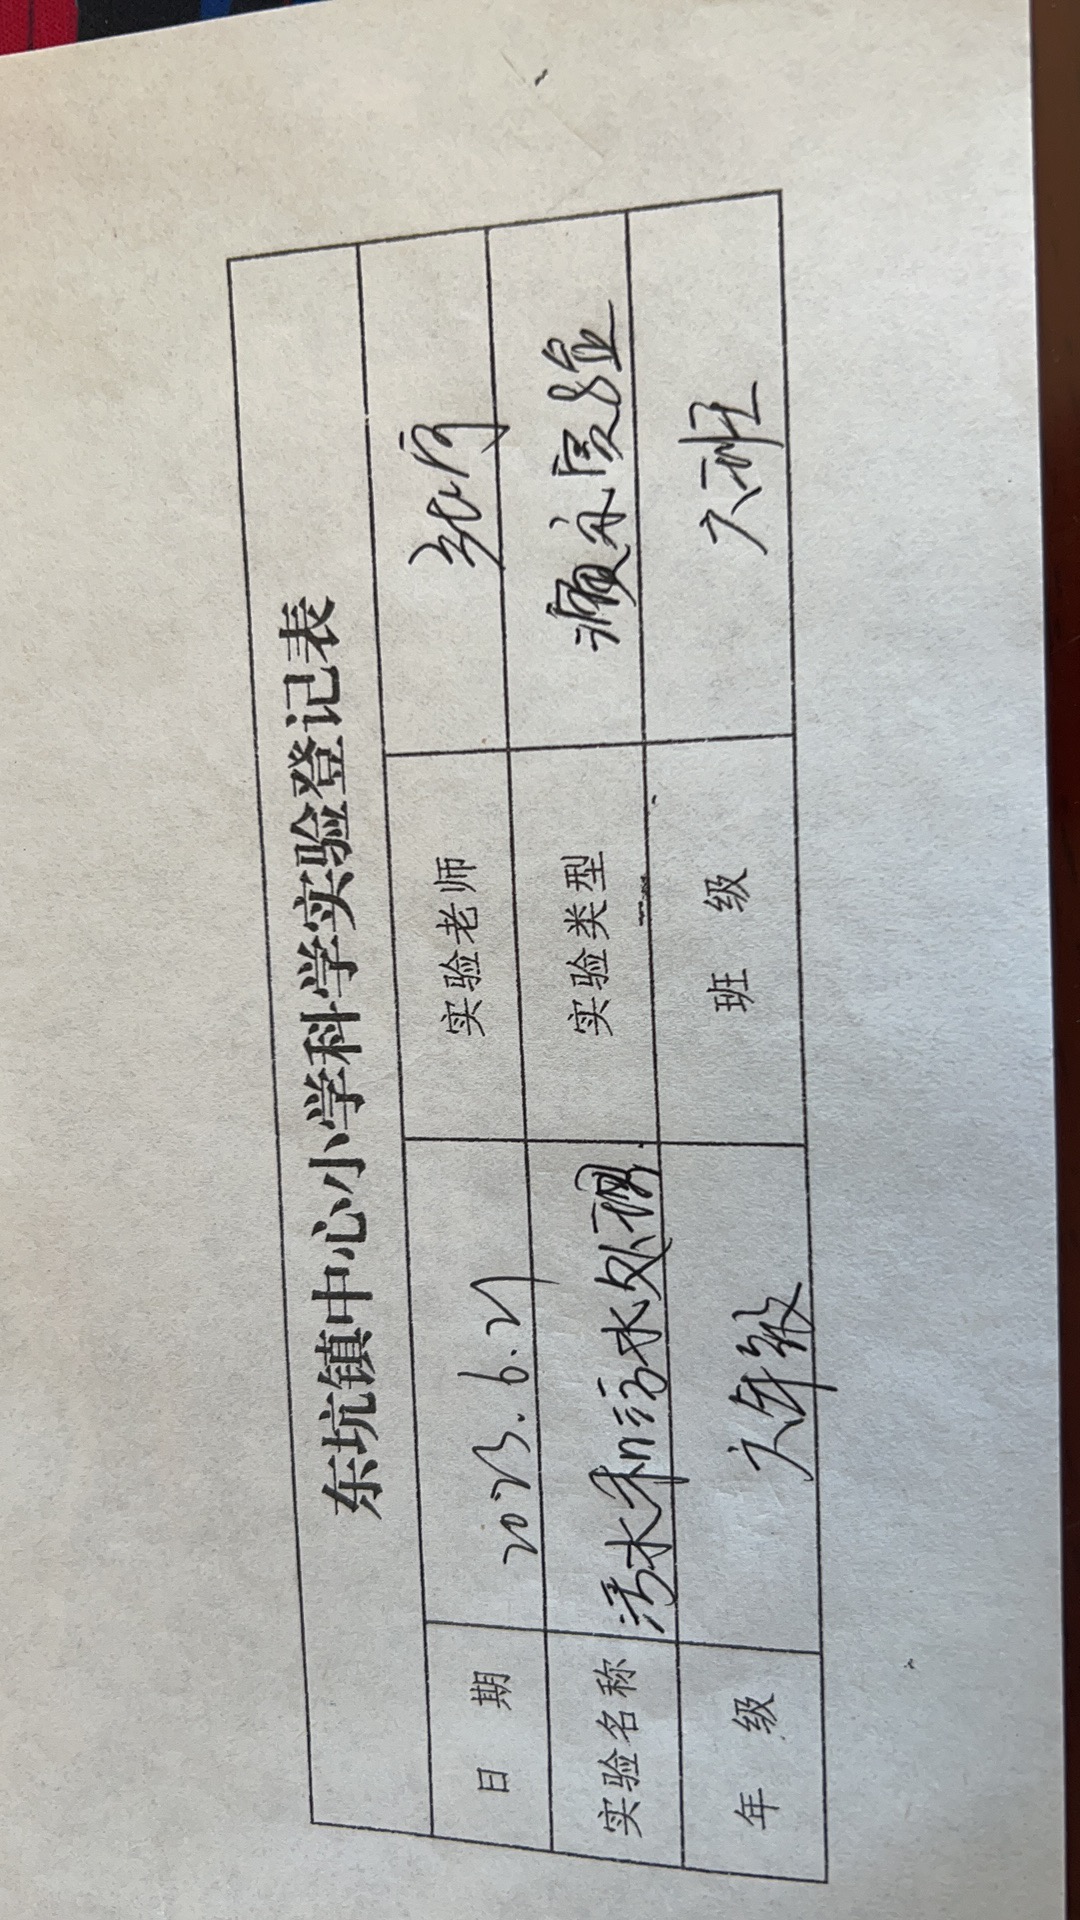 东坑镇中心小学科学实验登记表
日 期 2023.6.21 实验老师
实验名称 清水和污水处理 实验类型 演示实验
年 级 六年级 班 级 六班